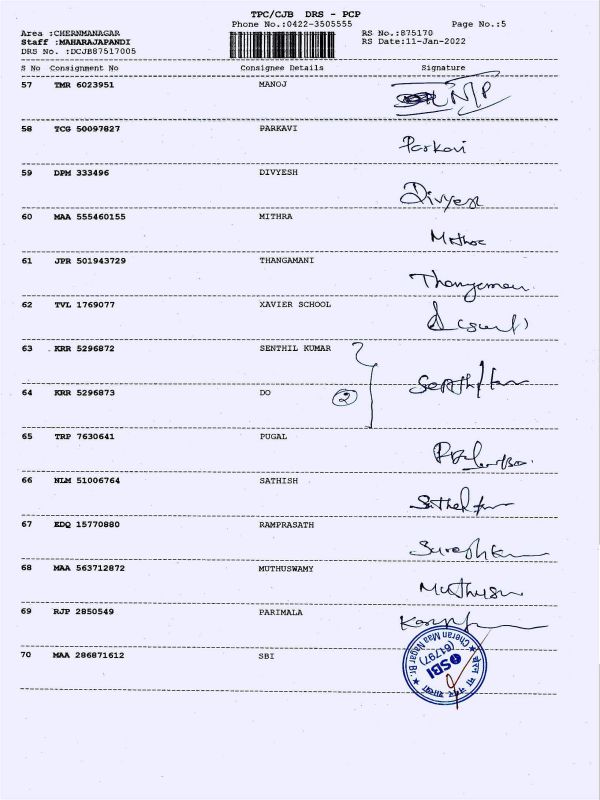 TPC/CJB DRS - PCP
Phone No.:0422-3505555 Page No.:5
Area :CHERNMANAGAR RS No.:875170
Staff :MAHARAJAPANDI RS Date:11-Jan-2022
DRS No. :DCJB87517005
S No Consignment No Consignee Details Signature
57 TMR 6023951 MANOJ N/P
58 TCG 50097827 PARKAVI Parkavi
59 DPM 333496 DIVYESH Divyesh
60 MAA 555460155 MITHRA
61 JPR 501943729 THANGAMANI
62 TVL 1769077 XAVIER SCHOOL
63 KRR 5296872 SENTHIL KUMAR
64 KRR 5296873 DO 2
65 TRP 7630641 PUGAL
66 NLM 51006764 SATHISH
67 EDQ 15770880 RAMPRASATH
68 MAA 563712872 MUTHUSWAMY
69 RJP 2850549 PARIMALA
70 MAA 286871612 SBI
Cheran Maa Nagar Br.
(61797)
SBI